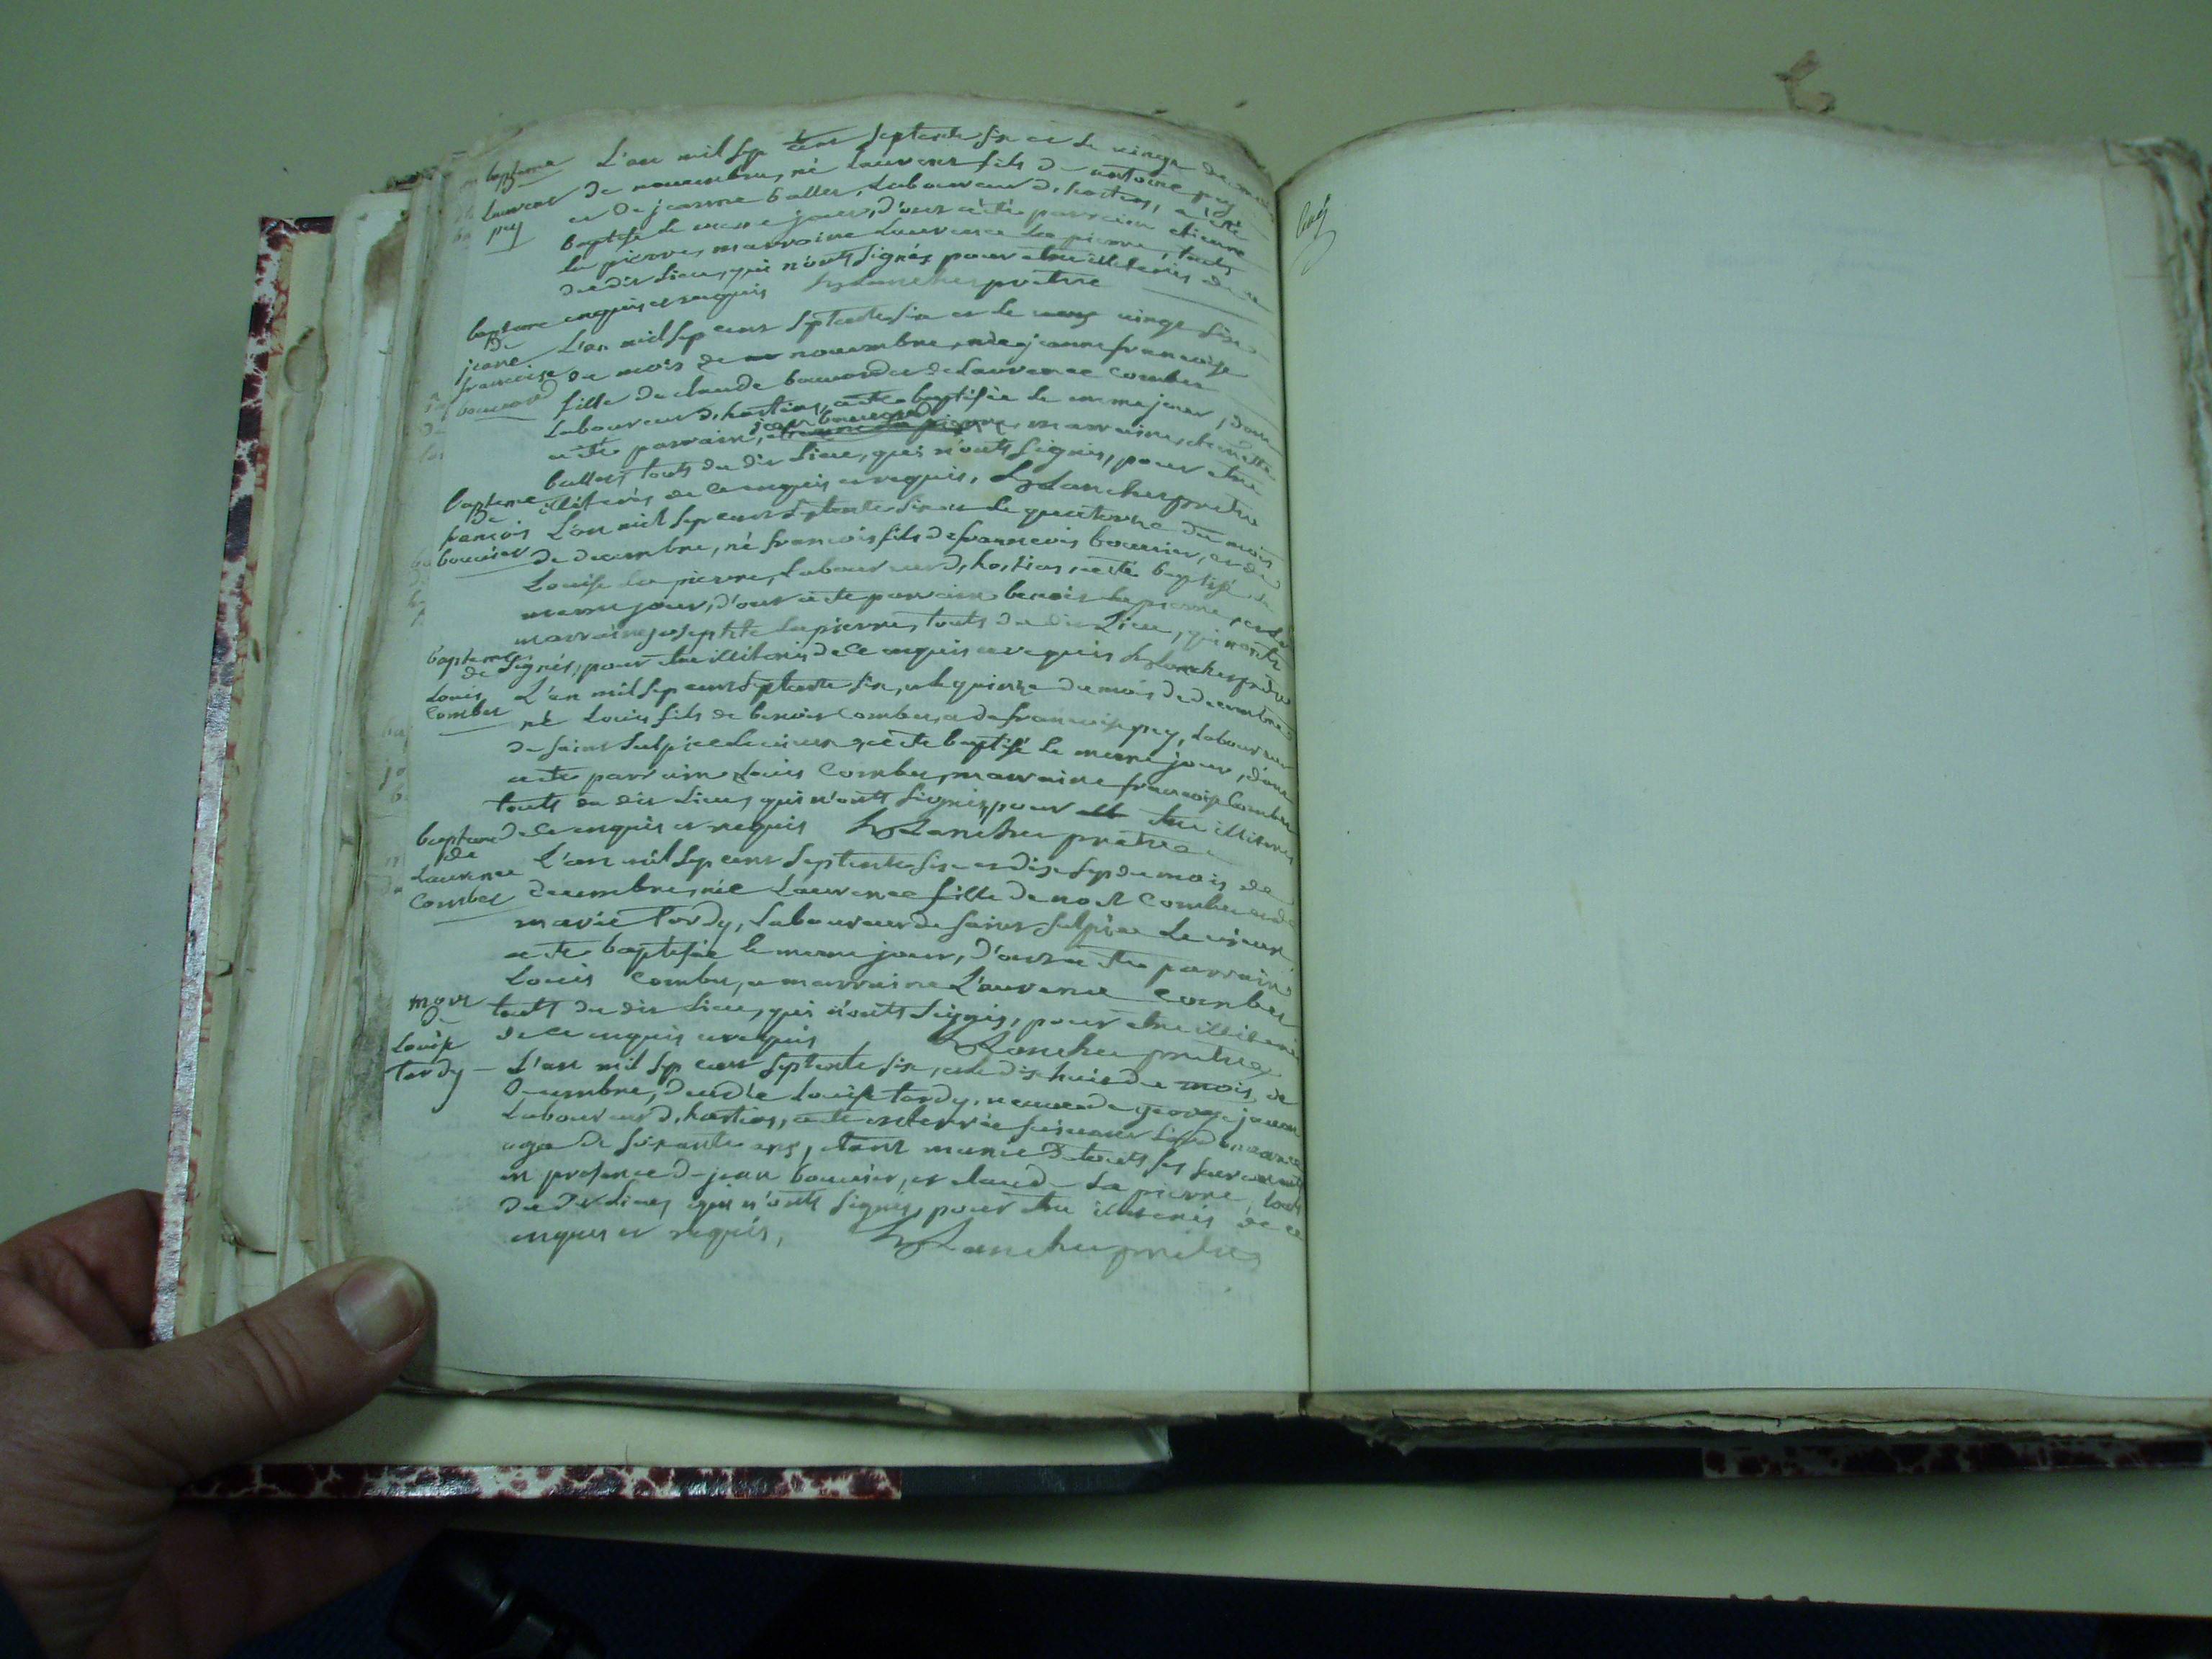 bapteme L'an mil sep cens septente six et le vingt du mois
laurens de novembre, né laurens fils de antoine puy
puy et de jeanne ballet, laboureur d'hostias, a été
baptisé le meme jour, d'ont a été parrain etienne
la pierre, marraine laurence la pierre, touts
du dit lieu, qui n'onts signés pour etre illiteris de ce
enquis et requis Blancher pretre
bapteme de jeane francoise bouvard
L'an mil sep cens septente six et le vingt six
du mois de novembre, née jeanne francoise
fille de claude bouvard et de laurence Combet
laboureur d'hostias, a été baptisée le meme jour, dont
a été parrain, jean bouvard, marraine,
ballet, touts du dit lieu, qui n'onts signés, pour etre
illiterés de ce enquis et requis, Blancher pretre
bapteme de francois bouvier
L'an mil sep cens septente six et le quatorze du mois
de decembre, né francois fils de francois bouvier, et de
Louise la pierre, laboureur d'hostias, a été baptisé le
meme jour, d'ont a été parrain benoit la pierre, et la
marraine josephte la pierre, touts du dit Lieu, qui n'onts
signés, pour etre illiteris de ce enquis et requis Blancher pretre
bapteme de Louis Combet
L'an mil sep cens septente six, et le quinze du mois de decembre
né Louis fils de benoit Combet, et de francoise puy, laboureur
de saint sulpice le vieux, a été baptisé le meme jour, d'ont
a été parrain Louis Combet, marraine francoise Combet
touts du dit Lieu, qui n'onts signés, pour etre illiteris
de ce enquis et requis Blancher pretre
bapteme de Laurence Combet
L'an mil sep cens septente six et dix sep du mois de
decembre, née Laurence fille de noel Combet et de
marie tardy, laboureur de saint sulpice le vieux
a été baptisée le meme jour, d'ont a été parrain
Louis Combet, et marraine Laurence Combet
touts du dit Lieu, qui n'onts signés, pour etre illiteris
de ce enquis et requis Blancher pretre
mort de Louise tardy
L'an mil sep cens septente six, et le dix huit du mois de
decembre, decedée Louise tardy, veuve de george
laboureur d'hostias, a été enterrée suivant l'ordonnance
agée de soixante ans, etant munie de touts les sacrements
en presence de jean bouvier, et claude La pierre, touts
du dit Lieu, qui n'onts signés, pour etre illiteris de ce
enquis et requis, Blancher pretre